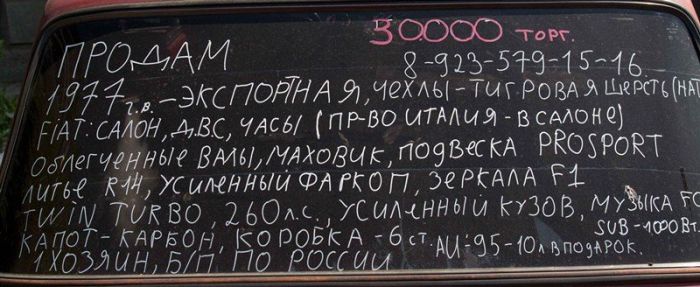 30000 ТОРГ.
ПРОДАМ 8-923-579-15-16
1977 г.в. - ЭКСПОРТНАЯ, ЧЕХЛЫ-ТИГРОВАЯ ШЕРСТЬ (НАТ
FIAT: САЛОН, Д.В.С, ЧАСЫ (ПР-ВО ИТАЛИЯ-В САЛОНЕ)
ОБЛЕГЧЕННЫЕ ВАЛЫ, МАХОВИК, ПОДВЕСКА PROSPORT
ЛИТЬЕ R14, УСИЛЕННЫЙ ФАРКОП, ЗЕРКАЛА F1
TWIN TURBO, 260 Л.С., УСИЛЕННЫЙ КУЗОВ, МУЗЫКА FO
SUB-1000 Вт.
КАПОТ-КАРБОН, КОРОБКА-6 ст. АИ-95-10Л В ПОДАРОК.
1 ХОЗЯИН, Б/П, ПО РОССИИ